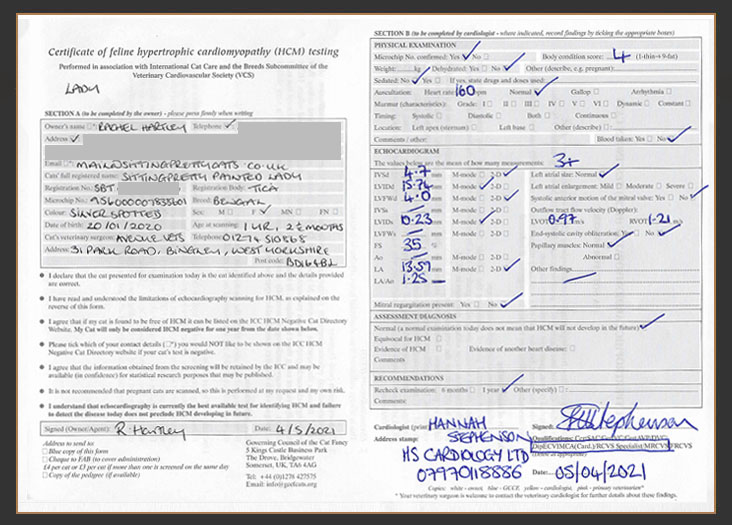 Certificate of feline hypertrophic cardiomyopathy (HCM) testing
Performed in association with International Cat Care and the Breeds Subcommittee of the
Veterinary Cardiovascular Society (VCS)
LADY
SECTION A (to be completed by the owner) - please press firmly when writing
Owner's name RACHEL HARTLEY Telephone ✓
Address ✓
Email MAIL@SITTINGPRETTYCATS.CO.UK
Cats' full registered name: SITTINGPRETTY PAINTED LADY
Registration No: SBT Registration Body: TICA
Microchip No: 956000007833601 Breed: BENGAL
Colour: SILVER SPOTTED Sex: M F ✓ MN FN
Date of birth: 20/01/2020 Age at scanning: 1 YR, 2½ MONTHS
Cat's veterinary surgeon: AVENUE VETS Telephone: 01274 510868
Address: 31 PARK ROAD, BINGLEY, WEST YORKSHIRE
Post code: BD16 4BL
I declare that the cat presented for examination today is the cat identified above and the details provided
are correct.
I have read and understood the limitations of echocardiography scanning for HCM, as explained on the
reverse of this form.
I agree that if my cat is found to be free of HCM it can be listed on the ICC HCM Negative Cat Directory
Website. My Cat will only be considered HCM negative for one year from the date shown below.
Please tick which of your contact details (□*) you would NOT like to be shown on the ICC HCM
Negative Cat Directory website if your cat's test is negative.
I agree that the information obtained from the screening will be retained by the ICC and may be
available (in confidence) for statistical research purposes that may be published.
It is not recommended that pregnant cats are scanned, so this is performed at my request and my own risk.
I understand that echocardiography is currently the best available test for identifying HCM and failure
to detect the disease today does not preclude HCM developing in future.
Signed (Owner/Agent): R. Hartley Date: 4/5/2021
Address to send to:
Blue copy of this form
Cheque to FAB (to cover administration)
£4 per cat or £3 per cat if more than one is screened on the same day
Copy of the pedigree (if available)
Governing Council of the Cat Fancy
5 Kings Castle Business Park
The Drove, Bridgewater
Somerset, UK, TA6 4AG
Tel: +44 (0)1278 427575
Email: info@gccfcats.org
SECTION B (to be completed by cardiologist - where indicated, record findings by ticking the appropriate boxes)
PHYSICAL EXAMINATION
Microchip No. confirmed: Yes ✓ No Body condition score: 4 (1-thin→9-fat)
Weight: kg Dehydrated: Yes No ✓ Other (describe, e.g. pregnant):
Sedated: No ✓ Yes If yes, state drugs and doses used:
Auscultation: Heart rate 160 bpm Normal ✓ Gallop Arrhythmia
Murmur (characteristics): Grade: I II III IV V VI Dynamic Constant
Timing: Systolic Diastolic Both Continuous
Location: Left apex (sternum) Left base Other (describe)
Comments / other: Blood taken: Yes No ✓
ECHOCARDIOGRAM
The values below are the mean of how many measurements: 3+
IVSd 4.7 mm M-mode 2-D ✓ Left atrial size: Normal ✓
LVIDd 15.74 mm M-mode 2-D ✓ Left atrial enlargement: Mild Moderate Severe
LVFWd 4.0 mm M-mode 2-D ✓ Systolic anterior motion of the mitral valve: Yes No ✓
IVSs mm M-mode 2-D Outflow tract flow velocity (Doppler):
LVIDs 10.23 mm M-mode 2-D ✓ LVOT 0.97 m/s RVOT 1.21 m/s
LVFWs mm M-mode 2-D End-systolic cavity obliteration: Yes No ✓
FS 35 % Papillary muscles: Normal ✓
Ao mm M-mode 2-D Abnormal
LA 13.59 mm M-mode 2-D ✓ Other findings:
LA/Ao 1.25
Mitral regurgitation present: Yes No ✓
ASSESSMENT DIAGNOSIS
Normal (a normal examination today does not mean that HCM will not develop in the future) ✓
Equivocal for HCM
Evidence of HCM Evidence of another heart disease:
Comments
RECOMMENDATIONS
Recheck examination: 6 months 1 year ✓ Other (specify):
Comments:
Cardiologist (print) HANNAH STEPHENSON Signed: HStephenson
Address stamp: HS CARDIOLOGY LTD
07970118886
Qualifications: CertSAC/CertVC/CertAVP/DVC/
DipECVIMCA(Card.)/RCVS Specialist/MRCVS/FRCVS
(Delete as appropriate)
Date: 05/04/2021
Copies: white - owner, blue - GCCF, yellow - cardiologist, pink - primary veterinarian*
* Your veterinary surgeon is welcome to contact the veterinary cardiologist for further details about these findings.